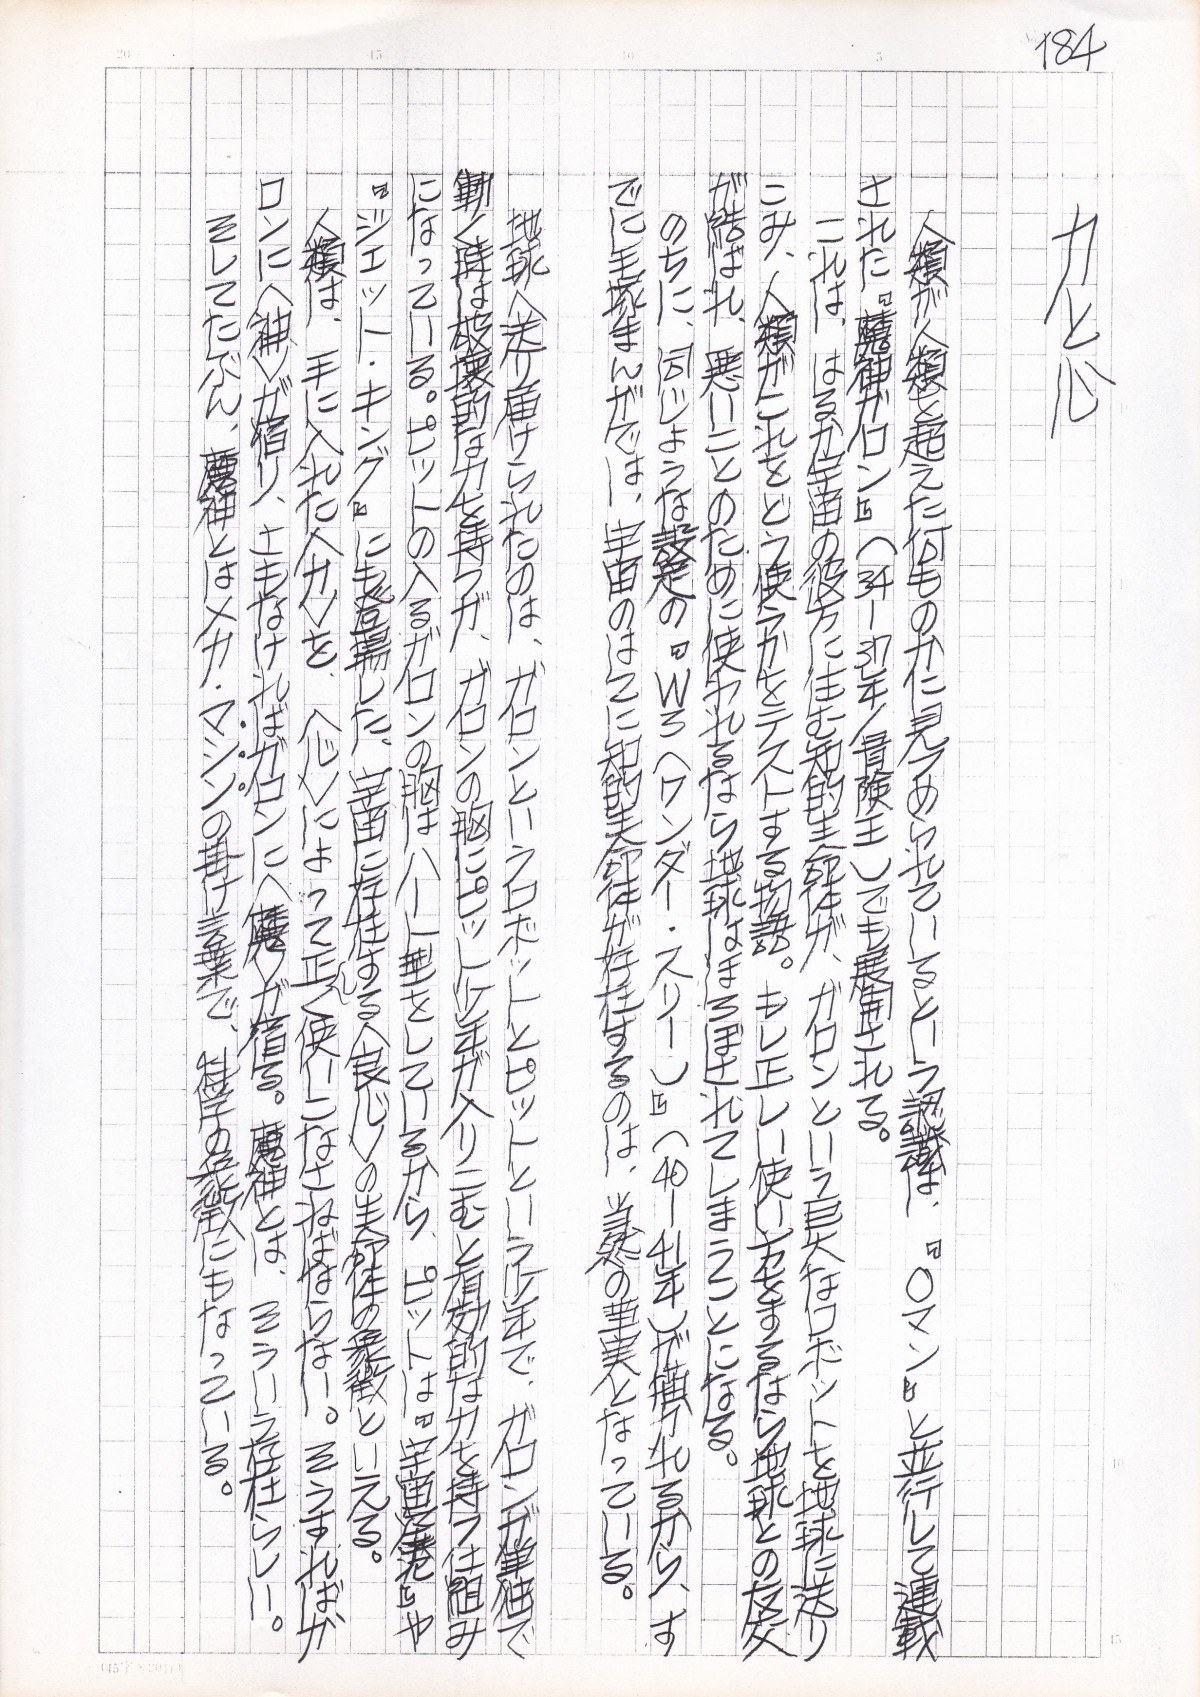 184
力と心
人類が人類を超えた何ものかに見つめられているという認識は、『0マン』と並行して連載
された『魔神ガロン』(34―37年/冒険王)でも展開される。
これは、はるか宇宙の彼方に住む知的生命体が、ガロンという巨大なロボットを地球に送り
こみ、人類がこれをどう使うかをテストする物語。もし正しい使い方をするなら地球との友交
が結ばれ、悪いことのために使われるなら地球はほろぼされてしまうことになる。
のちに、同じような設定の『W3(ワンダー・スリー)』(40―41年)が描かれるから、す
でに手塚まんがでは、宇宙のはてに知的生命体が存在するのは、当然の事実となっている。
地球へ送り届けられたのは、ガロンというロボットとピットという少年で、ガロンが単独で
動く時は破壊的な力を持つが、ガロンの胸にピット少年が入りこむと有効的な力を持つ仕組み
になっている。ピットの入るガロンの胸はハート型をしているから、ピットは『宇宙空港』や
『ジェット・キング』にも登場した、宇宙に存在する〈良心〉の生命体の象徴といえる。
人類は、手に入れた〈力〉を、〈心〉によって正しく使いこなさねばならない。そうすればガ
ロンに〈神〉が宿り、さもなければガロンに〈魔〉が宿る。魔神とは、そういう存在らしい。
そしてたぶん、魔神とはメカ・マシンの掛け言葉で、科学の象徴にもなっている。